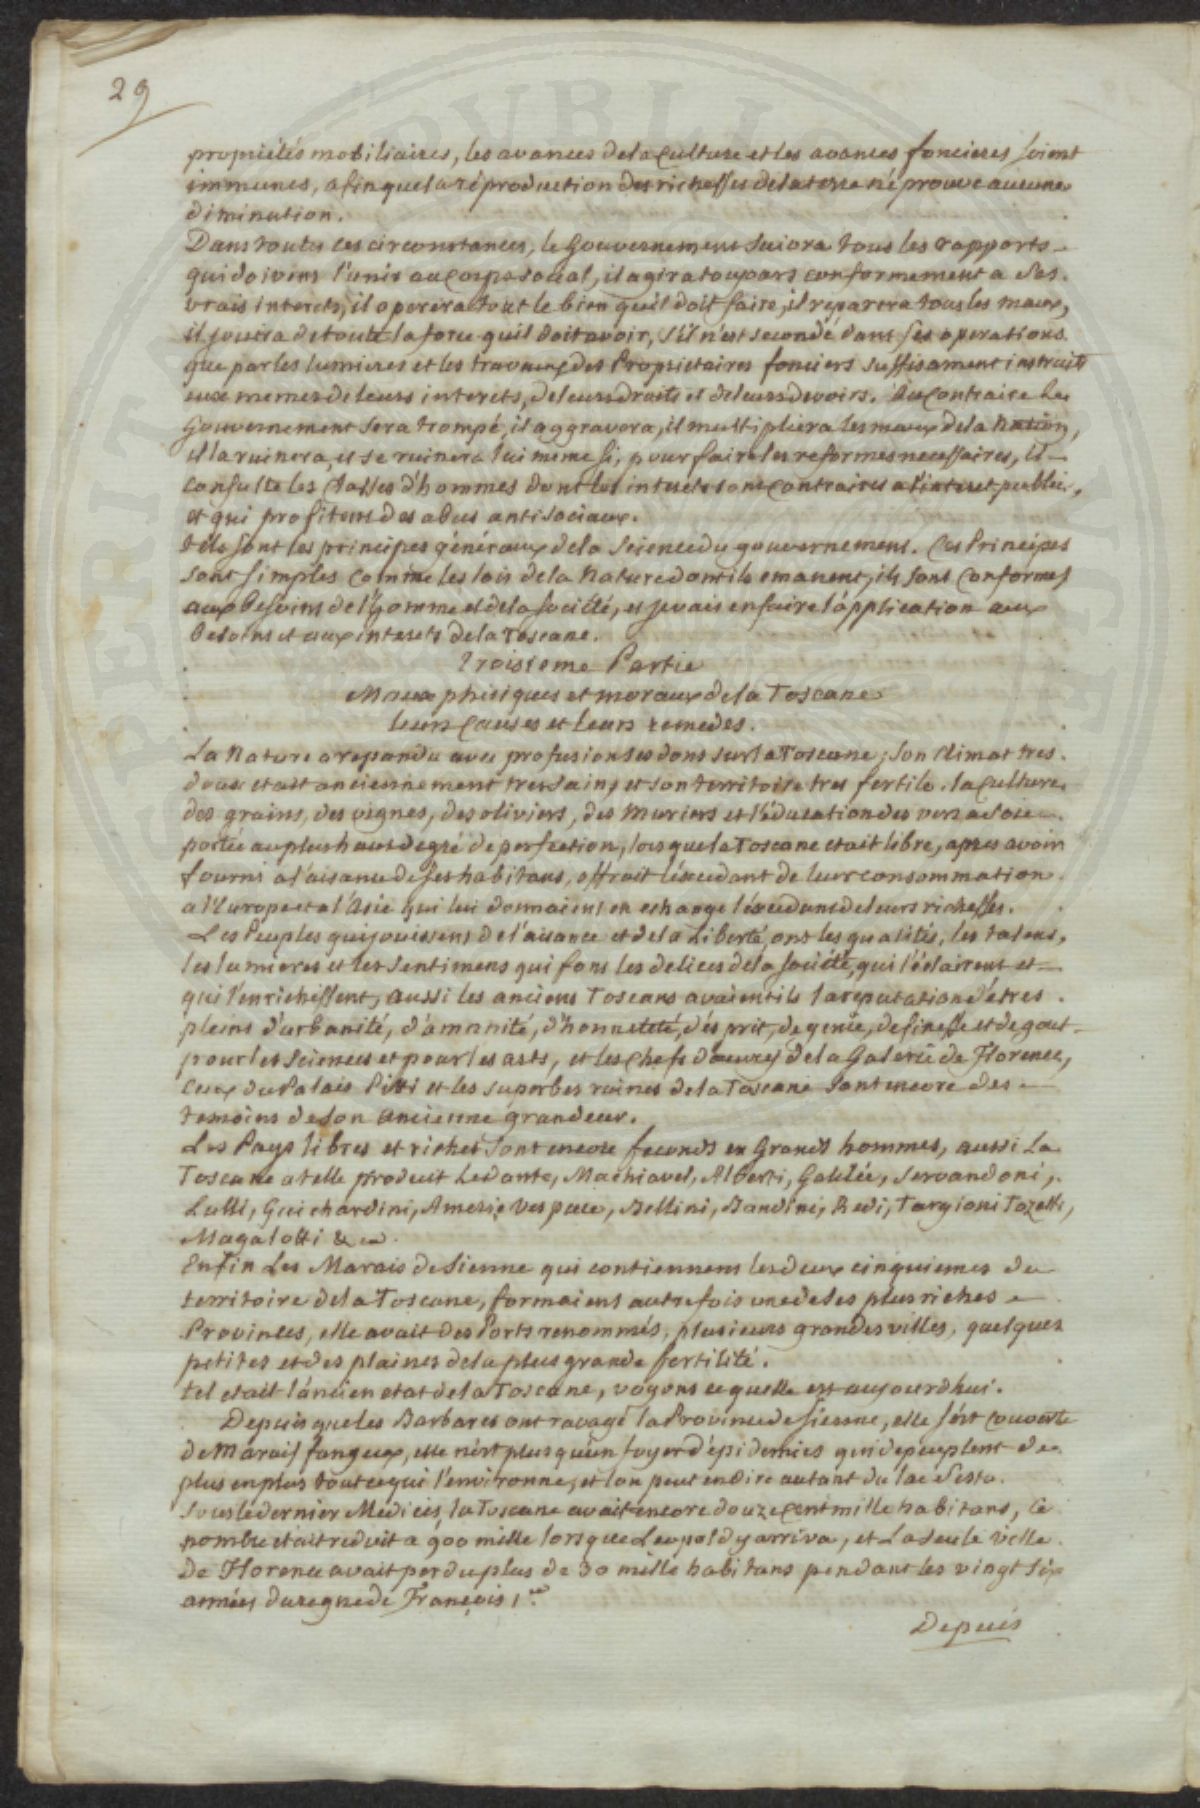 29
propriétés mobiliaires, les avances de la Culture et les avances foncieres soient
immunes, afin que la réproduction des richesses de la terre n'éprouve aucune
diminution.
Dans toutes ces circonstances, le Gouvernement suivra tous les rapports
qui doivent l'unir au Corps social, il agira toujours conformement a ses
vrais interets, il operera tout le bien qu'il doit faire, il reparera tous les maux,
il jouira de toute la force qu'il doit avoir, s'il n'est secondé dans ses operations
que par les lumieres et les travaux des Proprietaires fonciers suffisament instruits
eux memes de leurs interets, de leurs droits et de leurs devoirs. Au Contraire le
Gouvernement sera trompé, il aggravera, il multipliera les maux de la Nation,
il la ruinera, et se ruinera lui meme si, pour faire les reformes necessaires, il
consulte les Classes d'hommes dont les interets sont contraires a l'interet public,
et qui profitent des abus antisociaux.
tels sont les principes généraux de la Science du gouvernement. Ces Principes
sont simples comme les lois de la Nature dont ils emanent, ils sont conformes
aux Besoins de l'homme et de la société, et je vais en faire l'application aux
besoins et aux interets de la Toscane.
Troisieme Partie
Maux phisiques et moraux de la Toscane
leurs Causes et leurs remedes.
La Nature a repandu avec profusion ses dons sur la Toscane; son climat tres
doux etait anciennement tres sain, et son territoire tres fertile. la Culture
des grains, des vignes, des oliviers, des Muriers et l'éducation des vers a soie
portée au plus haut degré de perfection, lorsque la Toscane etait libre, apres avoir
fourni a l'aisance de ses habitans, offrait l'éxcedant de leur consommation
a l'Europe et a l'Asie qui lui donnaient en echange l'éxcedant de leurs richesses.
Les Peuples qui jouissent de l'aisance et de la Liberté, ont les qualités, les talens,
les lumieres et les sentimens qui font les delices de la société, qui l'éclairent et
qui l'enrichissent, aussi les anciens Toscans avaient ils la reputation d'etres
pleins d'urbanité, d'aménité, d'honneteté, d'ésprit, de génie, de finesse et de gout
pour les Sciences et pour les arts, et les Chefs d'oeuvres de la Galerie de Florence,
Ceux du Palais Pitti et les superbes ruines de la Toscane sont encore des
temoins de son Ancienne grandeur.
Les Pays libres et riches sont encore feconds en Grands hommes, aussi la
Toscane a telle produit Le Dante, Machiavel, Alberti, Galilée, Servandoni,
Lulli, Guichardini, Americ Vespuce, Bellini, Bandini, Redi, Targioni Tozetti,
Magalotti &ca.
Enfin Les Marais de Sienne qui contiennent les deux cinquiemes du
territoire de la Toscane, formaient autrefois une de ses plus riches
Provinces, elle avait des Ports renommés, plusieurs grandes villes, quelques
petites et des plaines de la plus grande fertilité.
tel etait l'ancien etat de la Toscane, voyons ce qu'elle est aujourdhui.
Depuis que les Barbares ont ravagé la Province de Sienne, elle s'est couverte
de Marais fangeux, elle n'est plus qu'un foyer d'épidemies qui depeuplent de
plus en plus tout ce qui l'environne, et l'on peut en dire autant du lac Sesto.
Sous le dernier Medicis, la Toscane avait encore douze cent mille habitans, ce
nombre etait reduit a 900 mille lorsque Leopold y arriva, et La seule ville
de Florence avait perdu plus de 30 mille habitans pendant les vingt six
années du regne de François 1er
Depuis